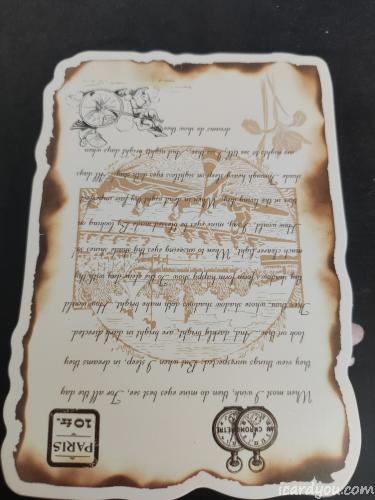 PARIS
10 ft.
CHRONOMETRE
When most I wink, then do mine eyes best see, For all the day
they view things unrespected; But when I sleep, in dreams they
look on thee, And darkly bright, are bright in dark directed.
Then thou, whose shadow shadows doth make bright, How would
thy shadow's form form happy show To the clear day with thy
much clearer light, When to unseeing eyes thy shade shines so!
How would, I say, mine eyes be blessed made By looking on
thee in the living day, When in dead night thy fair
shade Through heavy sleep on sightless eyes doth stay! All
are nights to see till I see thee, And nights bright days when
dreams do show thee
icardyou.com